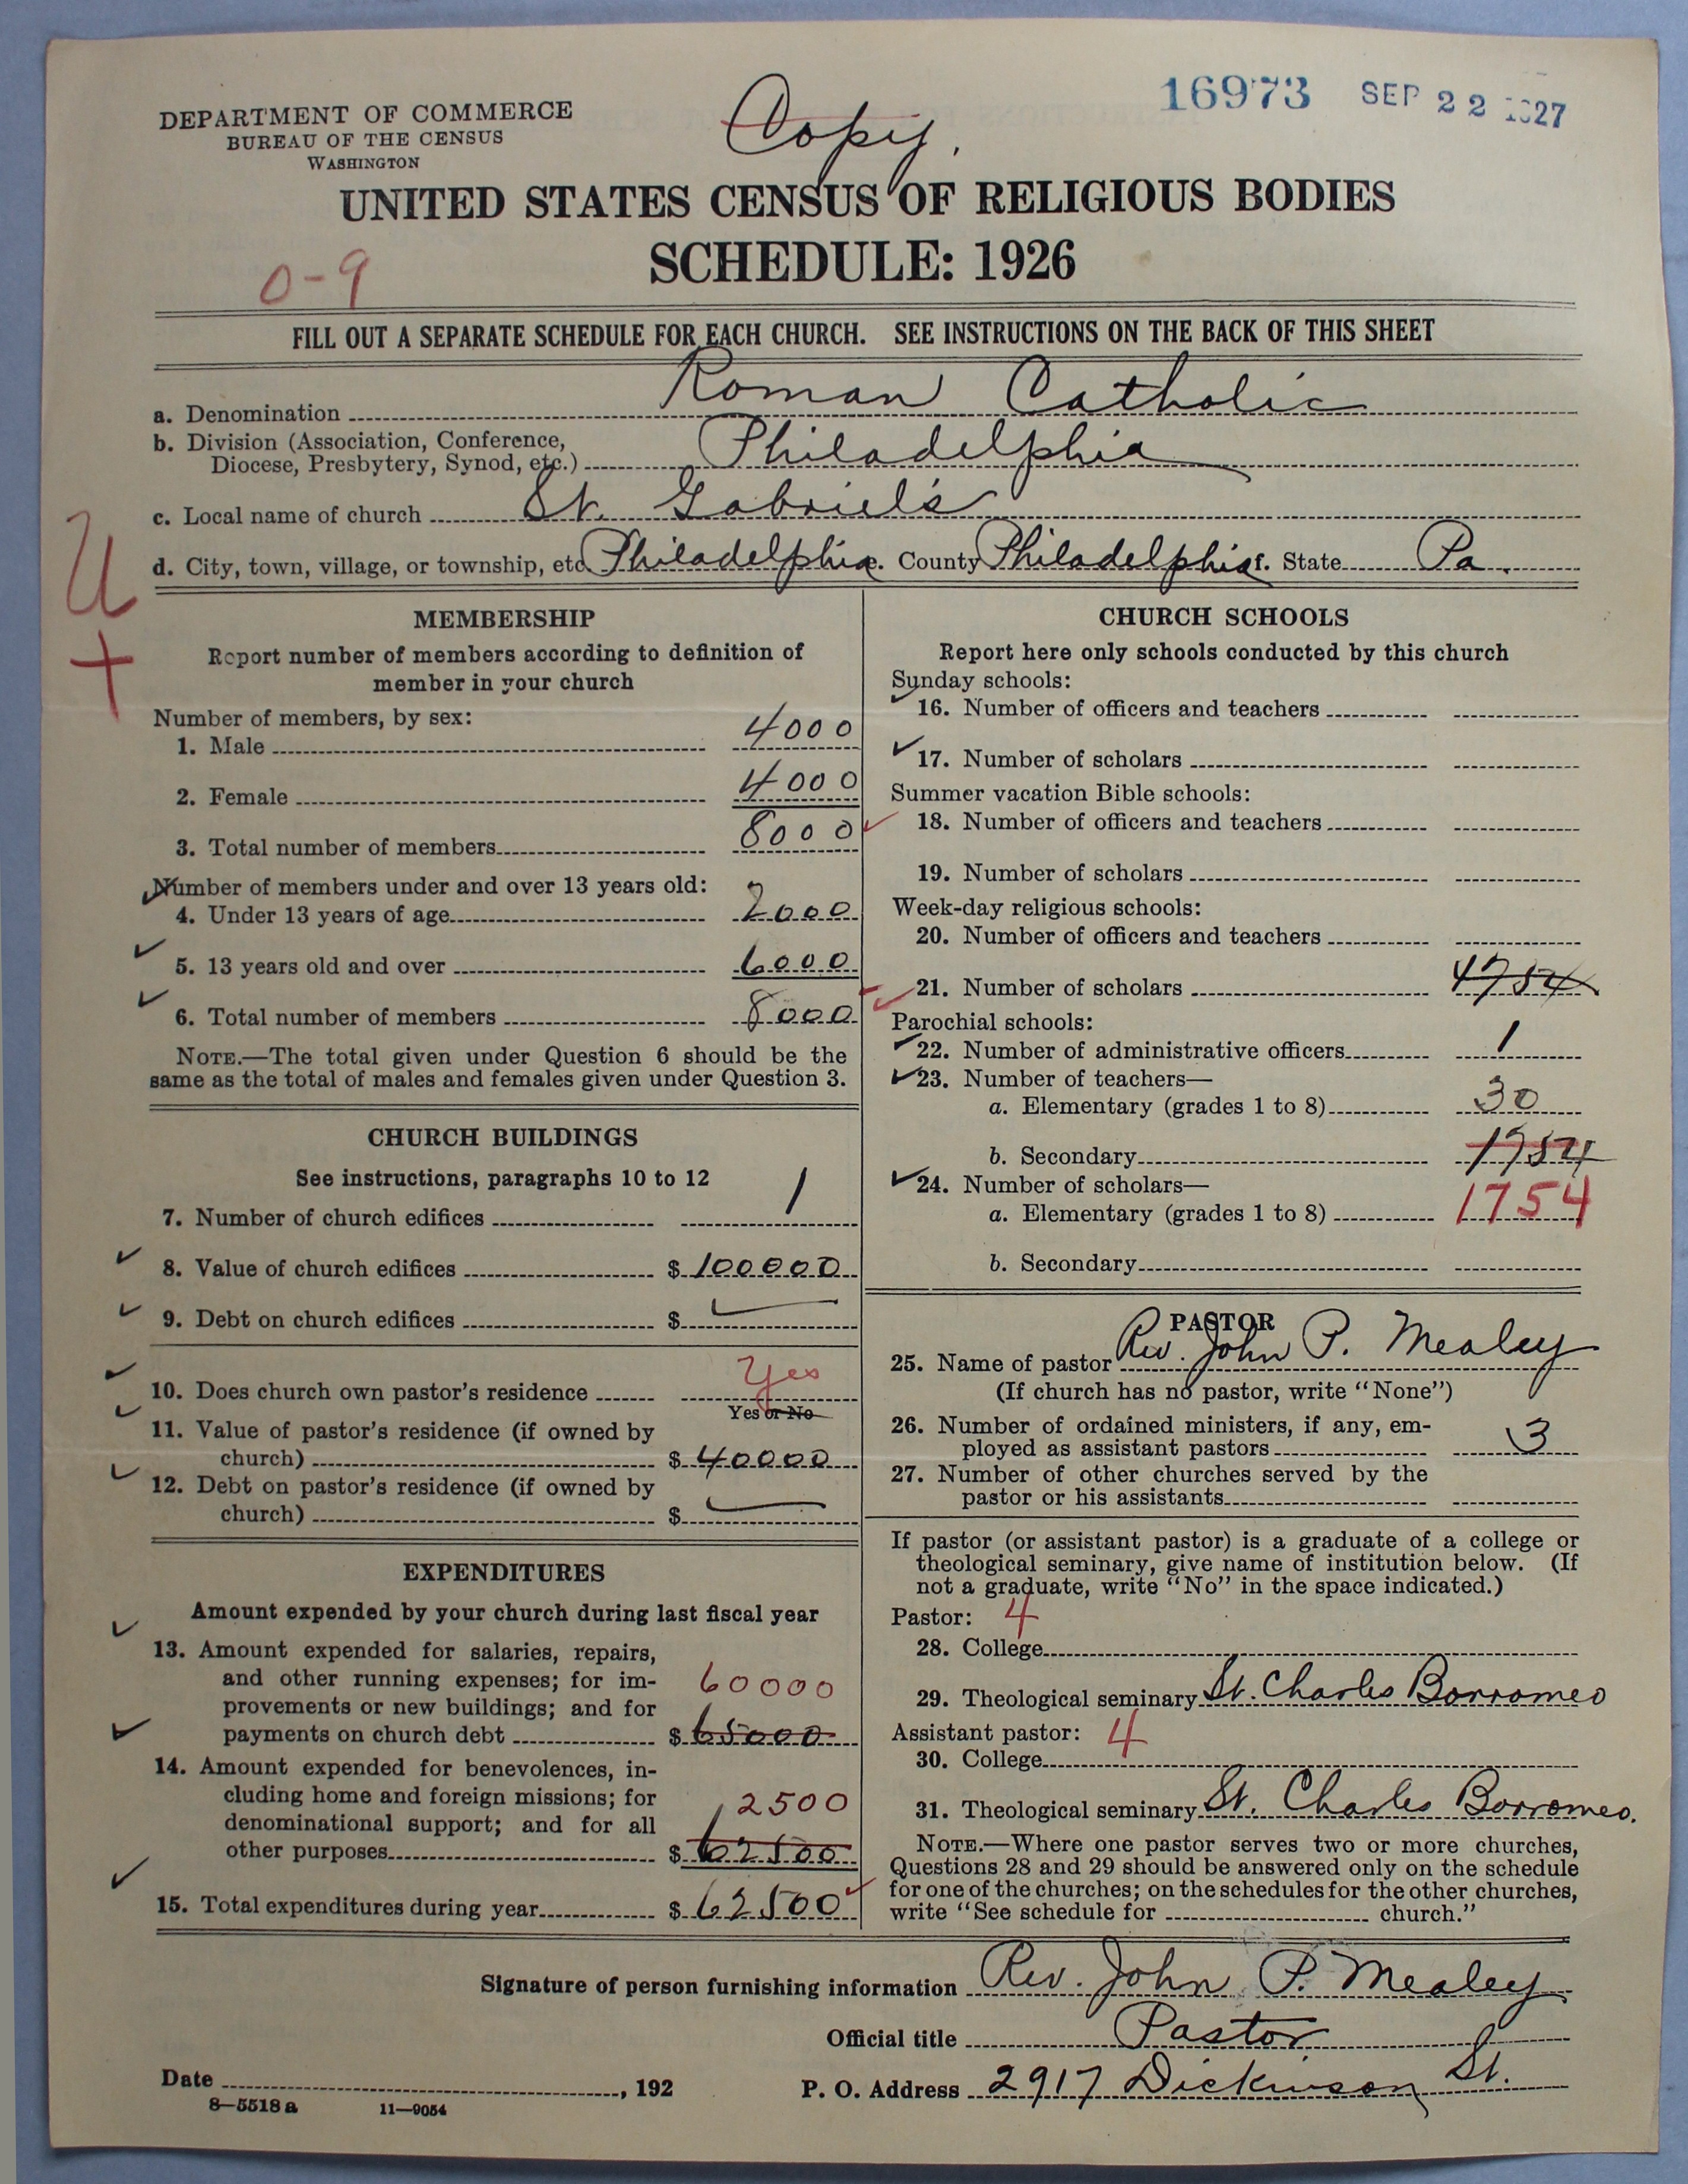 16973 SEP 22 1927
DEPARTMENT OF COMMERCE
BUREAU OF THE CENSUS
WASHINGTON
Copy.
UNITED STATES CENSUS OF RELIGIOUS BODIES
SCHEDULE: 1926
0-9
FILL OUT A SEPARATE SCHEDULE FOR EACH CHURCH. SEE INSTRUCTIONS ON THE BACK OF THIS SHEET
a. Denomination Roman Catholic
b. Division (Association, Conference,
Diocese, Presbytery, Synod, etc.) Philadelphia
c. Local name of church St. Gabriel's
d. City, town, village, or township, etc Philadelphia e. County Philadelphia f. State Pa.
U
+
MEMBERSHIP
Report number of members according to definition of
member in your church
Number of members, by sex:
1. Male 4000
2. Female 4000
3. Total number of members 8000
Number of members under and over 13 years old:
4. Under 13 years of age 2000
5. 13 years old and over 6000
6. Total number of members 8000
NOTE.—The total given under Question 6 should be the
same as the total of males and females given under Question 3.
CHURCH BUILDINGS
See instructions, paragraphs 10 to 12
7. Number of church edifices 1
8. Value of church edifices $ 100000
9. Debt on church edifices $
10. Does church own pastor's residence Yes
Yes or No
11. Value of pastor's residence (if owned by
church) $ 40000
12. Debt on pastor's residence (if owned by
church) $
EXPENDITURES
Amount expended by your church during last fiscal year
13. Amount expended for salaries, repairs,
and other running expenses; for im-
provements or new buildings; and for 60000
payments on church debt $ 65000
14. Amount expended for benevolences, in-
cluding home and foreign missions; for 2500
denominational support; and for all
other purposes $ 62500
15. Total expenditures during year $ 62500
CHURCH SCHOOLS
Report here only schools conducted by this church
Sunday schools:
16. Number of officers and teachers
17. Number of scholars
Summer vacation Bible schools:
18. Number of officers and teachers
19. Number of scholars
Week-day religious schools:
20. Number of officers and teachers
21. Number of scholars 1754
Parochial schools:
22. Number of administrative officers 1
23. Number of teachers—
a. Elementary (grades 1 to 8) 30
b. Secondary 1754
24. Number of scholars—
a. Elementary (grades 1 to 8) 1754
b. Secondary
PASTOR
25. Name of pastor Rev. John P. Mealey
(If church has no pastor, write "None")
26. Number of ordained ministers, if any, em-
ployed as assistant pastors 3
27. Number of other churches served by the
pastor or his assistants
If pastor (or assistant pastor) is a graduate of a college or
theological seminary, give name of institution below. (If
not a graduate, write "No" in the space indicated.)
Pastor: 4
28. College
29. Theological seminary St. Charles Borromeo
Assistant pastor: 4
30. College
31. Theological seminary St. Charles Borromeo.
NOTE.—Where one pastor serves two or more churches,
Questions 28 and 29 should be answered only on the schedule
for one of the churches; on the schedules for the other churches,
write "See schedule for church."
Signature of person furnishing information Rev. John P. Mealey
Official title Pastor
Date , 192 P. O. Address 2917 Dickinson St.
8—5518 a 11—9054